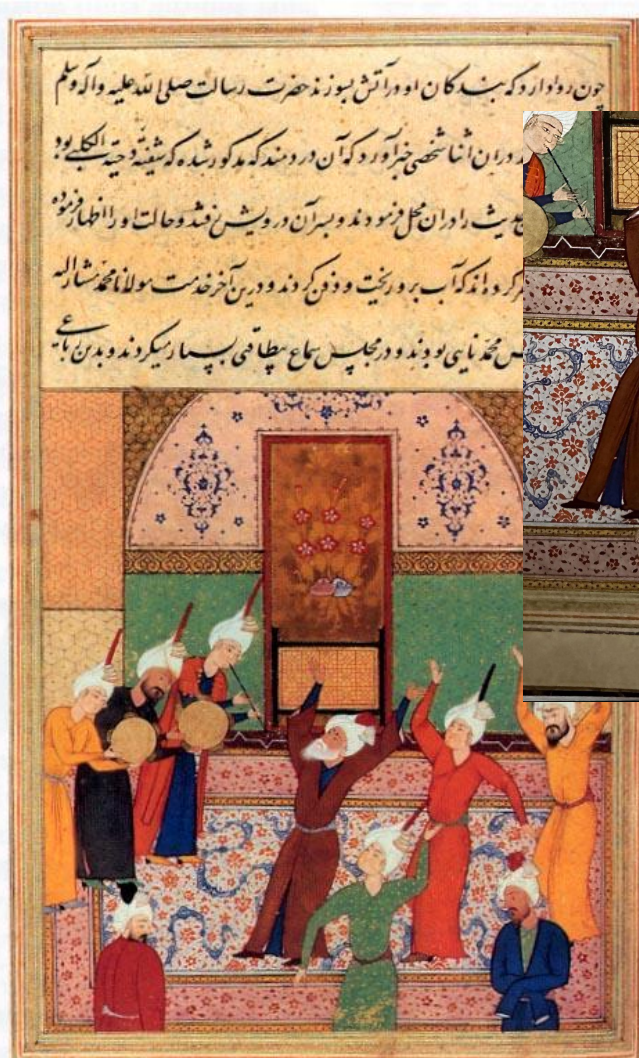 چون روا دارد که بندگان او در آتش بسوزند حضرت رسالت صلی الله علیه وآله وسلم
دران اثنا شخصی خبر آورد که آن دردمند که مذکور شده که شیفتهٔ دحیة الکلبی بود
را دران محل فرمودند و بسر آن درویش رفتند و حالت او را اظهار فرموده
کرده‌اند که آب برو ریخت و دفن کردند و درین آخر خدمت مولانا محمد مشارالیه
محمد نایی بودند و در مجلس سماع بیطاقتی بسیار میکردند و بدین رباعی